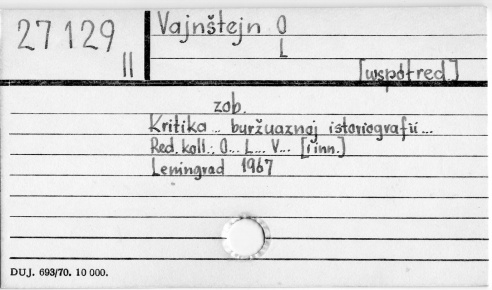 27 129
II
Vajnštejn O
L
[współred.]
zob.
Kritika... buržuaznoj istoriografii...
Red. koll.: O... L... V... [i inn.]
Leningrad 1967
DUJ. 693/70. 10 000.